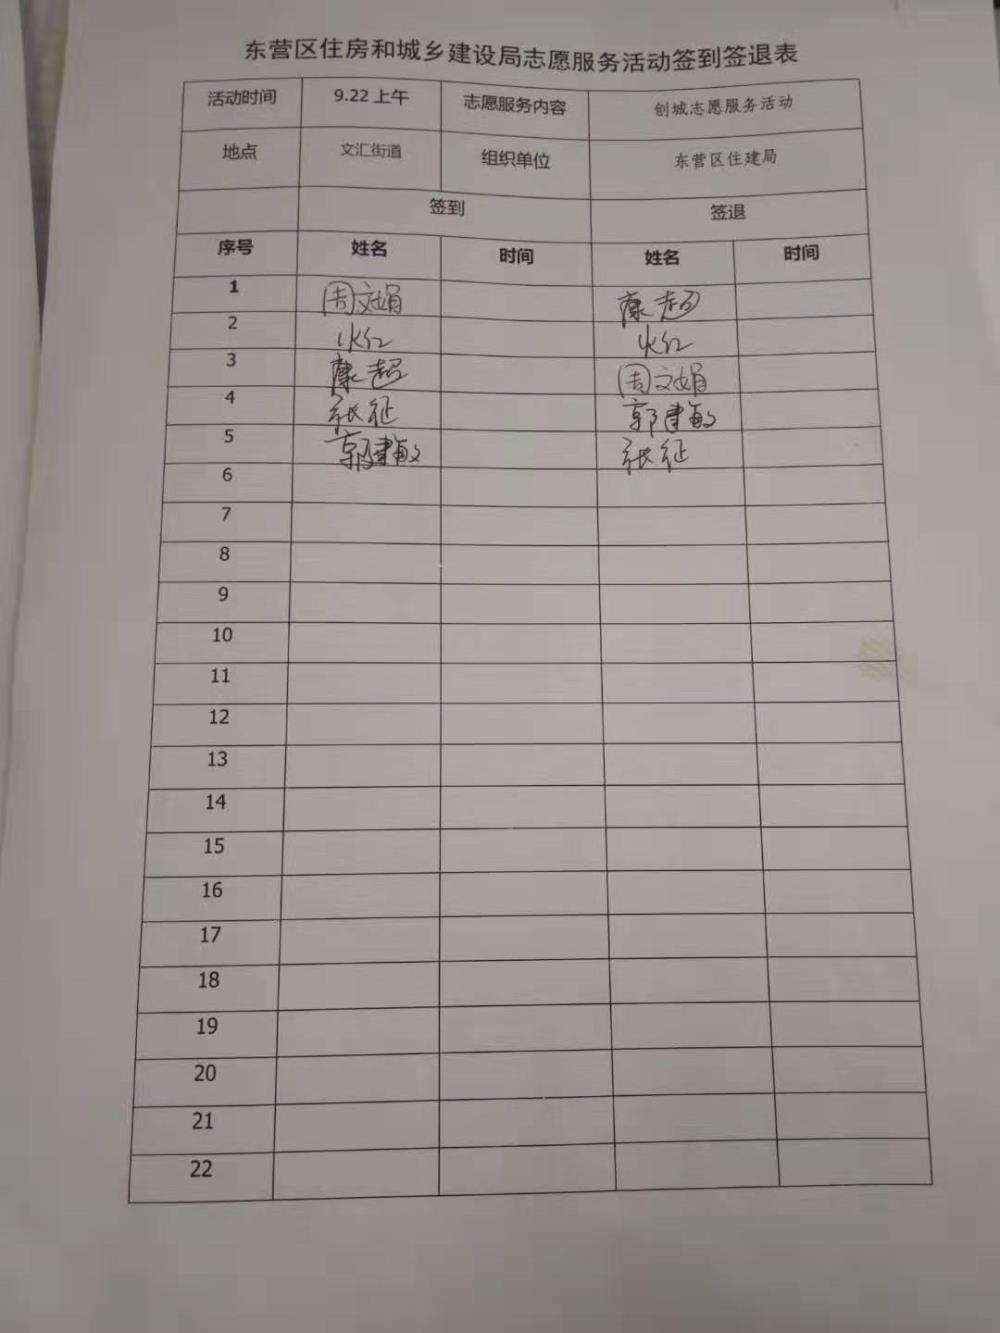 东营区住房和城乡建设局志愿服务活动签到签退表
活动时间 9.22 上午 志愿服务内容 创城志愿服务活动
地点 文汇街道 组织单位 东营区住建局
签到 签退
序号 姓名 时间 姓名 时间
1 周文娟 康超
2 火红 火红
3 康超 周文娟
4 张征 郭建敏
5 郭建敏 张征
6
7
8
9
10
11
12
13
14
15
16
17
18
19
20
21
22